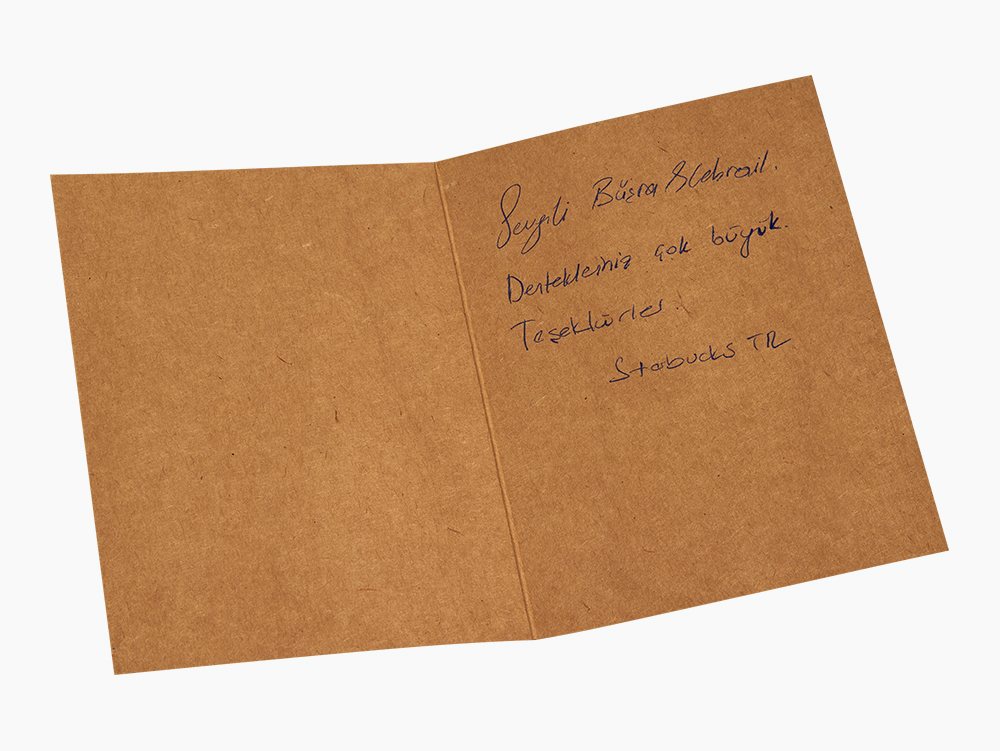 Sevgili Büşra
Destekleriniz çok büyük.
Teşekkürler.
Starbucks TR